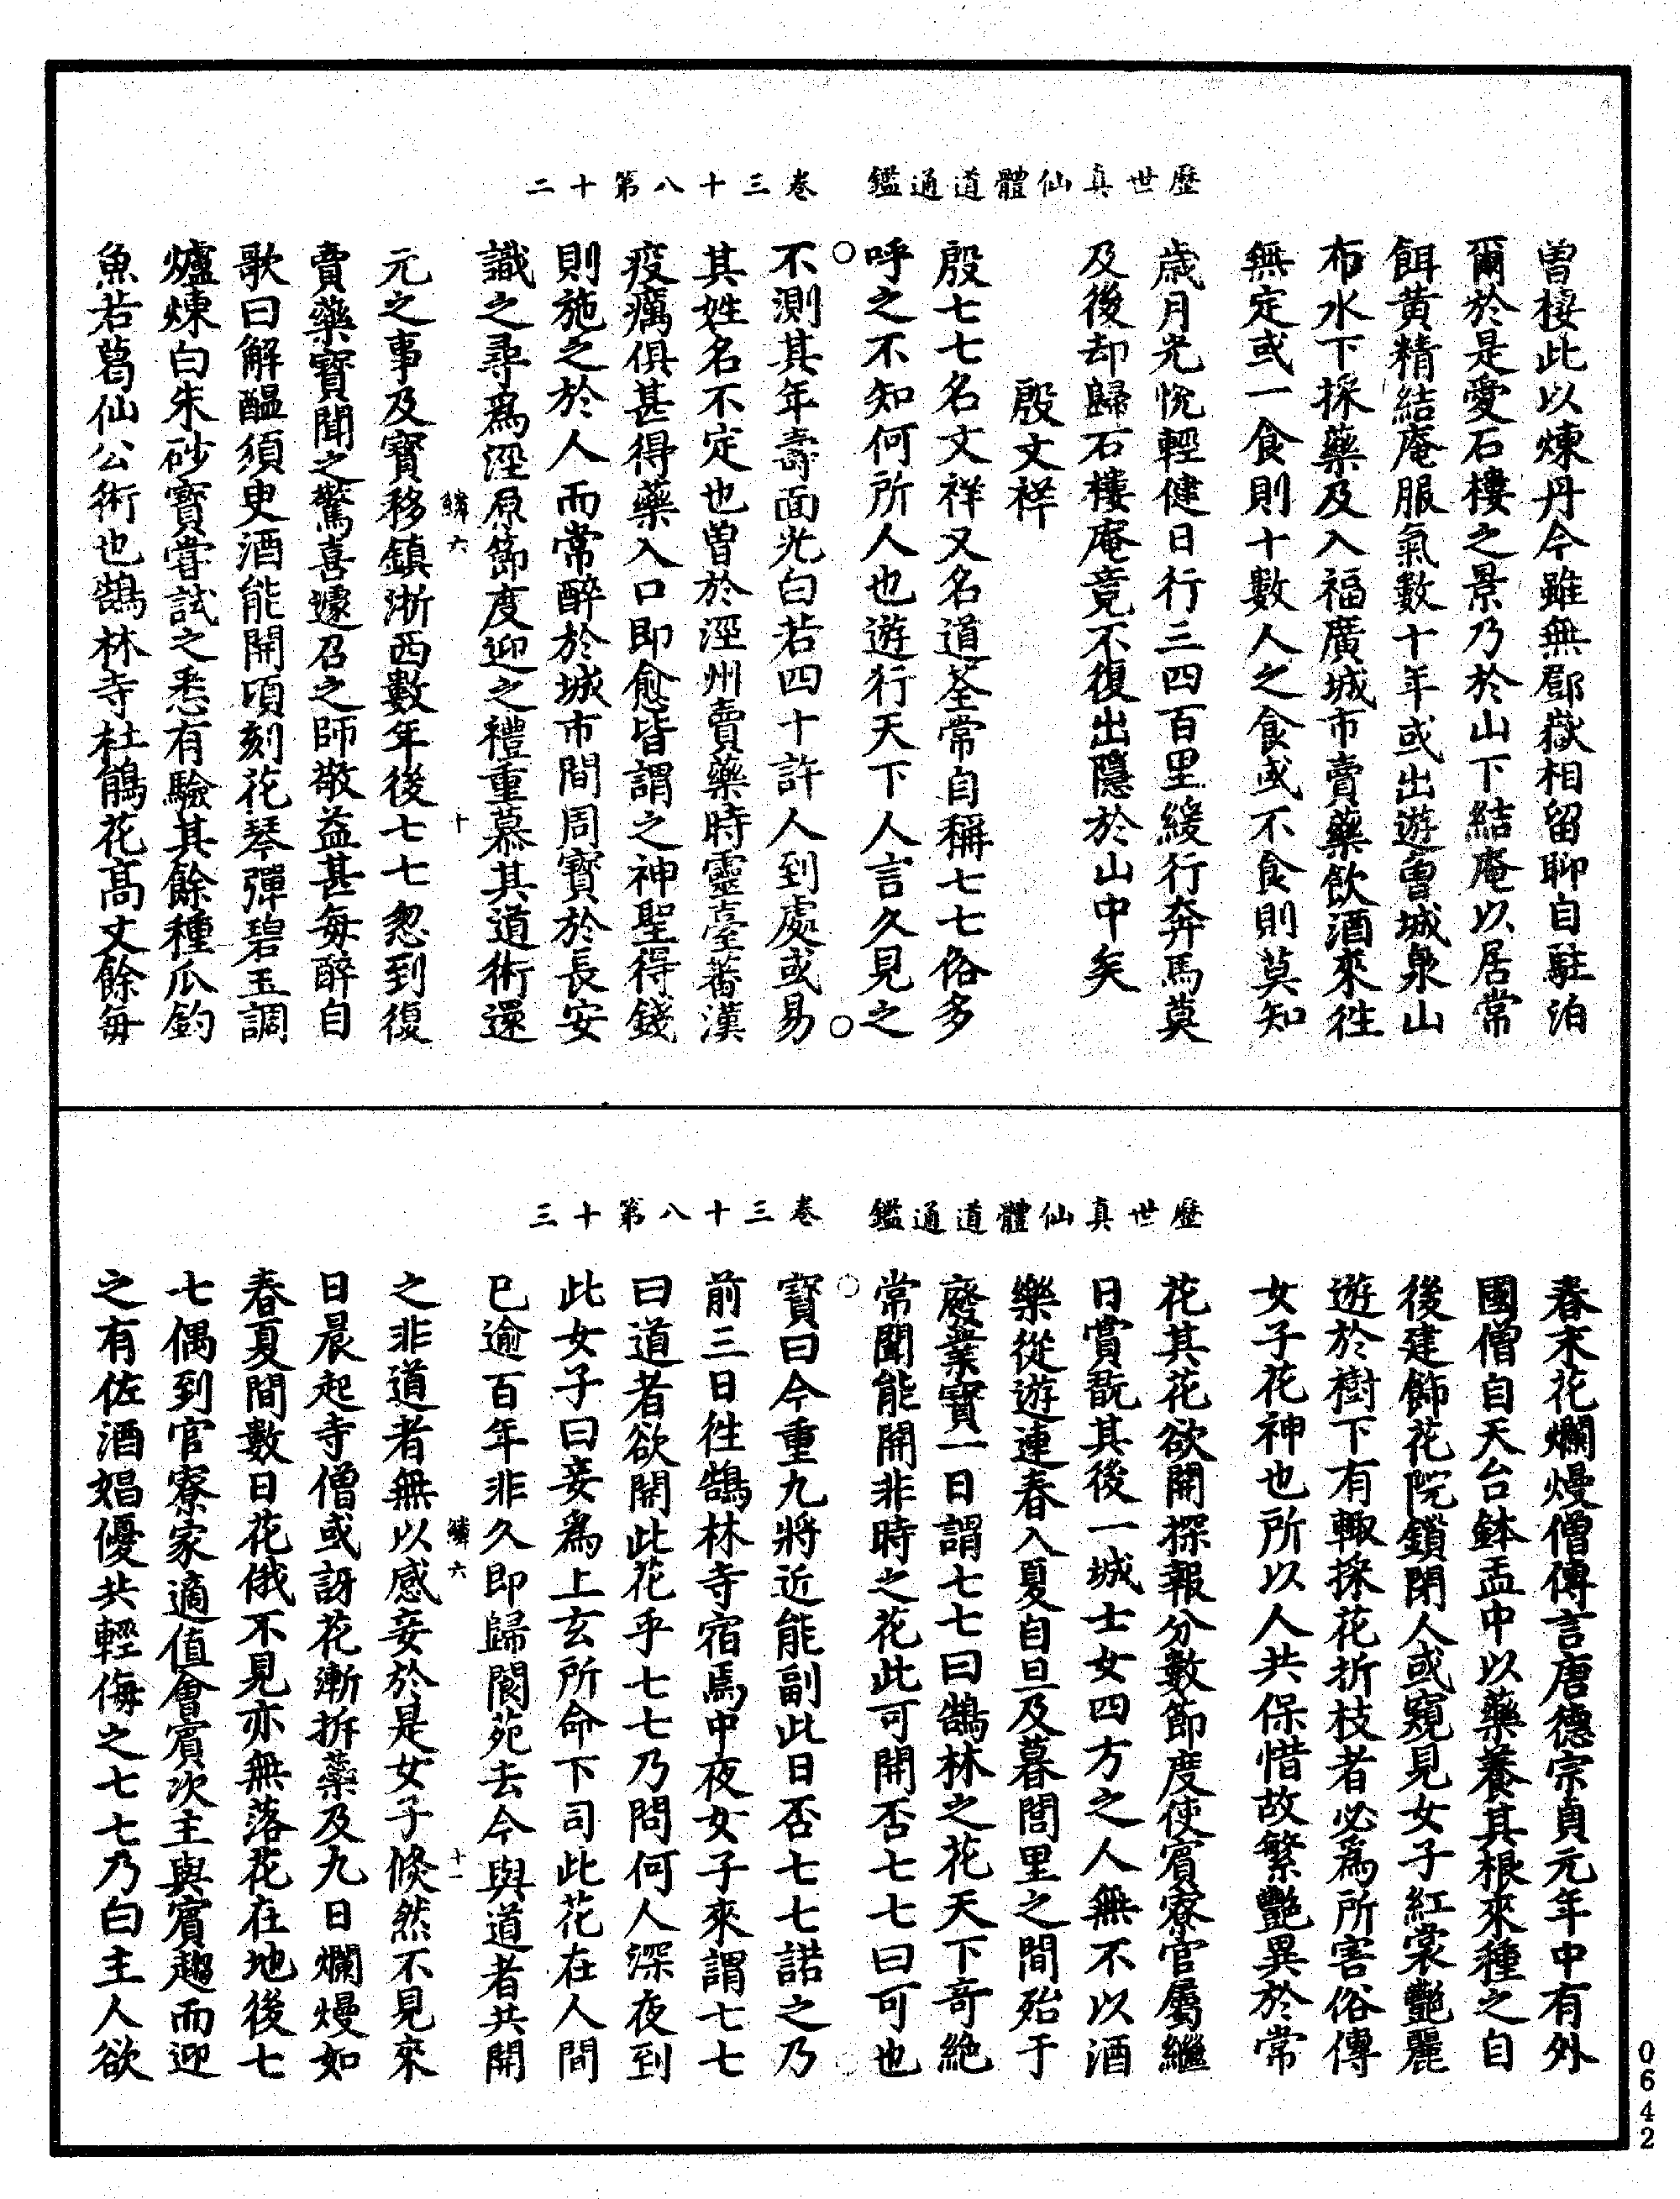 歷世真仙體道通鑑　卷三十八第十二
曾棲此以煉丹今雖無鄢嶽相留聊自駐泊
爾於是愛石樓之景乃於山下結庵以居常
餌黃精結庵服氣數十年或出遊曾城泉山
布水下採藥及入福廣城市賣藥飲酒來往
無定或一食則十數人之食或不食則莫知
歲月光悅輕健日行三四百里緩行奔馬莫
及後却歸石樓庵竟不復出隱於山中矣
殷文祥
殷七七名文祥又名道筌常自稱七七俗多
呼之不知何所人也遊行天下人言久見之
不測其年壽面光白若四十許人到處或易
其姓名不定也曾於涇州賣藥時靈臺蕃漢
疫癘俱甚得藥入口即愈皆謂之神聖得錢
則施之於人而常醉於城市間周寶於長安
識之尋爲涇原節度迎之禮重慕其道術還
鱗六　十
元之事及寶移鎮浙西數年後七七忽到復
賣藥寶聞之驚喜遽召之師敬益甚每醉自
歌曰解醞須臾酒能開頃刻花琴彈碧玉調
爐煉白朱砂寶嘗試之悉有驗其餘種瓜釣
魚若葛仙公術也鶴林寺杜鵑花高丈餘每
歷世真仙體道通鑑　卷三十八第十三
春末花爛熳僧傳言唐德宗貞元年中有外
國僧自天台鉢盂中以藥養其根來種之自
後建飾花院鎖閉人或窺見女子紅裳艷麗
遊於樹下有輙採花折枝者必爲所害俗傳
女子花神也所以人共保惜故繁艷異於常
花其花欲開探報分數節度使賓寮官屬繼
日賞翫其後一城士女四方之人無不以酒
樂從遊連春入夏自旦及暮閭里之間殆于
廢業寶一日謂七七曰鶴林之花天下奇絶
常聞能開非時之花此可開否七七曰可也
寶曰今重九將近能副此日否七七諾之乃
前三日往鶴林寺宿焉中夜女子來謂七七
曰道者欲開此花乎七七乃問何人深夜到
此女子曰妾爲上玄所命下司此花在人間
已逾百年非久即歸閬苑去今與道者共開
鱗六　十一
之非道者無以感妾於是女子倏然不見來
日晨起寺僧或訝花漸拆蘂及九日爛熳如
春夏間數日花俄不見亦無落花在地後七
七偶到官寮家適值會賓次主與賓趨而迎
之有佐酒娼優共輕侮之七七乃白主人欲
0642